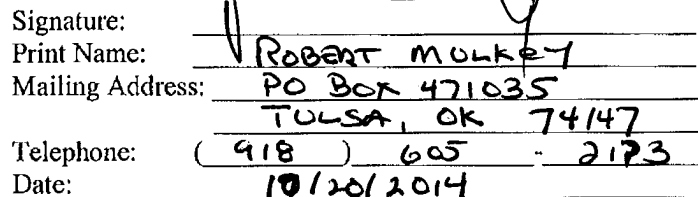 Signature:
Print Name: ROBERT MULKEY
Mailing Address: PO BOX 471035
TULSA, OK 74147
Telephone: ( 918 ) 605 - 2173
Date: 10/20/2014